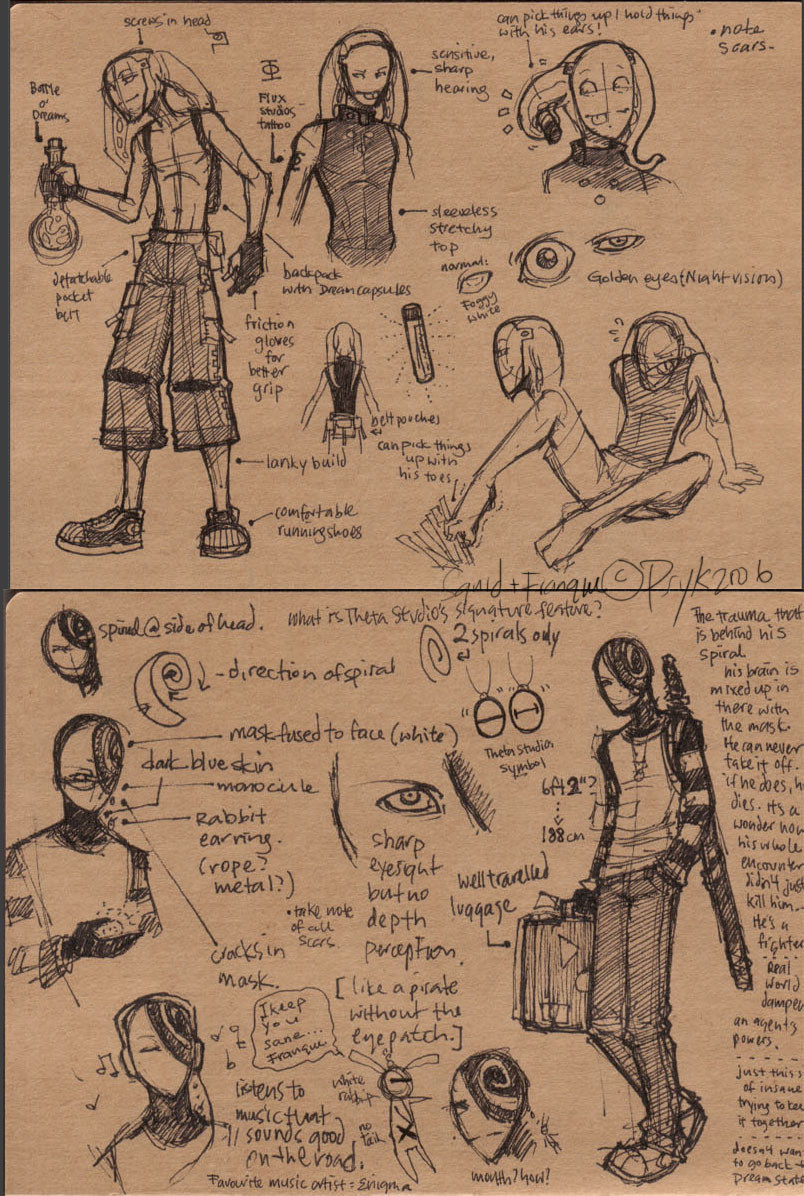 screws in head
can pick things up / hold things
with his ears!
• note
scars-
Bottle
o'
Dreams
Flux
studios
tattoo
sensitive,
sharp
hearing
sleeveless
stretchy
top
normal:
Foggy
white
Golden eyes (Night vision)
detatchable
pocket
belt
backpack
with Dream capsules
friction
gloves
for
better
grip
belt pouches
can pick things
up with
his toes.
lanky build
comfortable
running shoes
Squid + Franque © Psyk 2006
spiral @ side of head.
What is Theta Studio's signature feature?
2 spirals only
- direction of spiral
Theta studio
symbol
mask fused to face (white)
dark blue skin
monocule
Rabbit
earring.
(rope?
metal?)
• take note
of all
scars.
cracks in
mask.
sharp
eyesight
but no
depth
perception.
[like a pirate
without the
eyepatch.]
6ft 2"?
188cm
well travelled
luggage
The trauma that
is behind his
spiral.
his brain is
mixed up in
there with
the mask.
He can never
take it off.
if he does, h
dies. its a
wonder how
his whole
encounter
didn't just
kill him.
He's a
fighter
Real
world
dampen
an agent's
powers.
just this s
of insane
trying to kee
it together
doesn't wan
to go back t
Dream state
I keep
you
sane...
Franque
white
rabbit
no
tail
listens to
music that
sounds good
on the road.
Favourite music artist = Enigma
mouth? how?